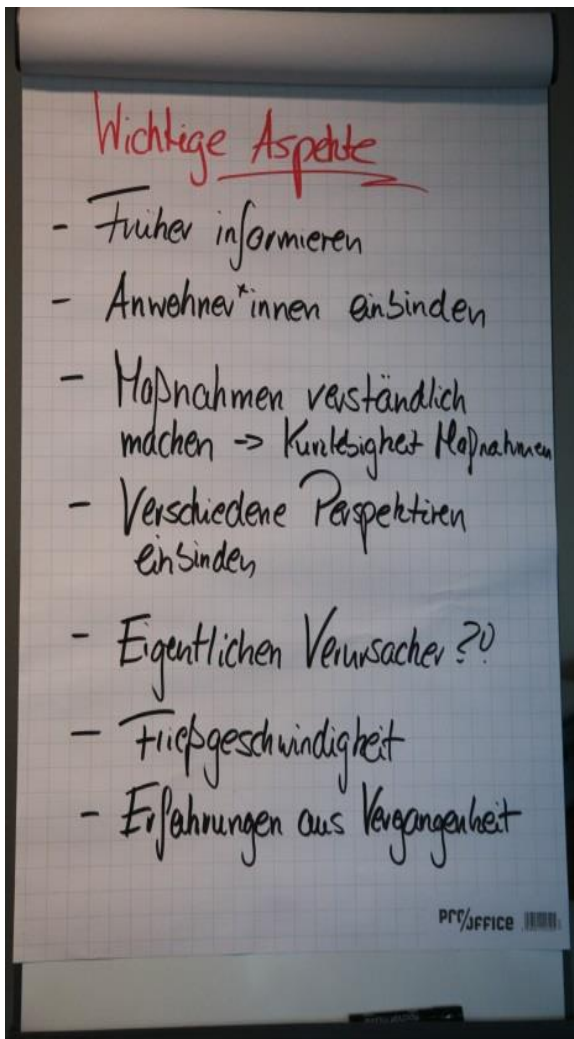 Wichtige Aspekte
- Früher informieren
- Anwohner*innen einbinden
- Maßnahmen verständlich
machen -> Maßnahmen
- Verschiedene Perspektiven
einbinden
- Eigentlichen Verursacher??
- Fließgeschwindigkeit
- Erfahrungen aus Vergangenheit
pro/office